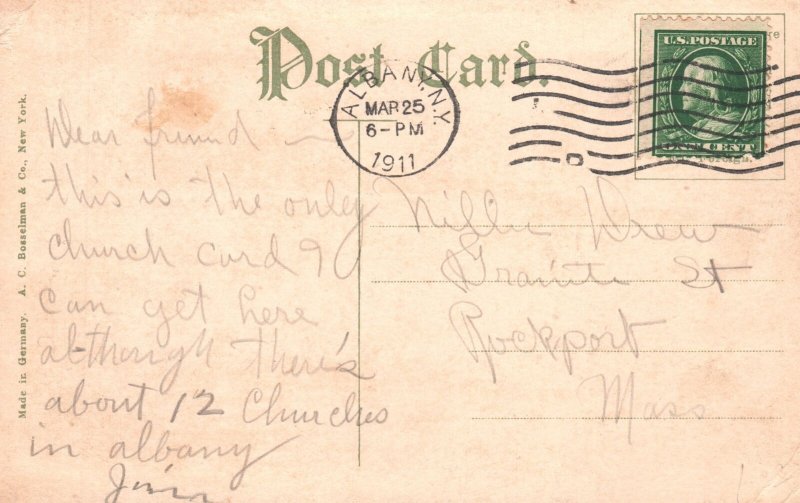 Post Card.
ALBANY, N.Y.
MAR 25
6-PM
1911
U.S. POSTAGE
CENT
Made in Germany. A. C. Bosselman & Co., New York.
Dear friend
this is the only
church card I
can get here
although there's
about 12 Churches
in albany
Drew
Granite St
Rockport
Mass